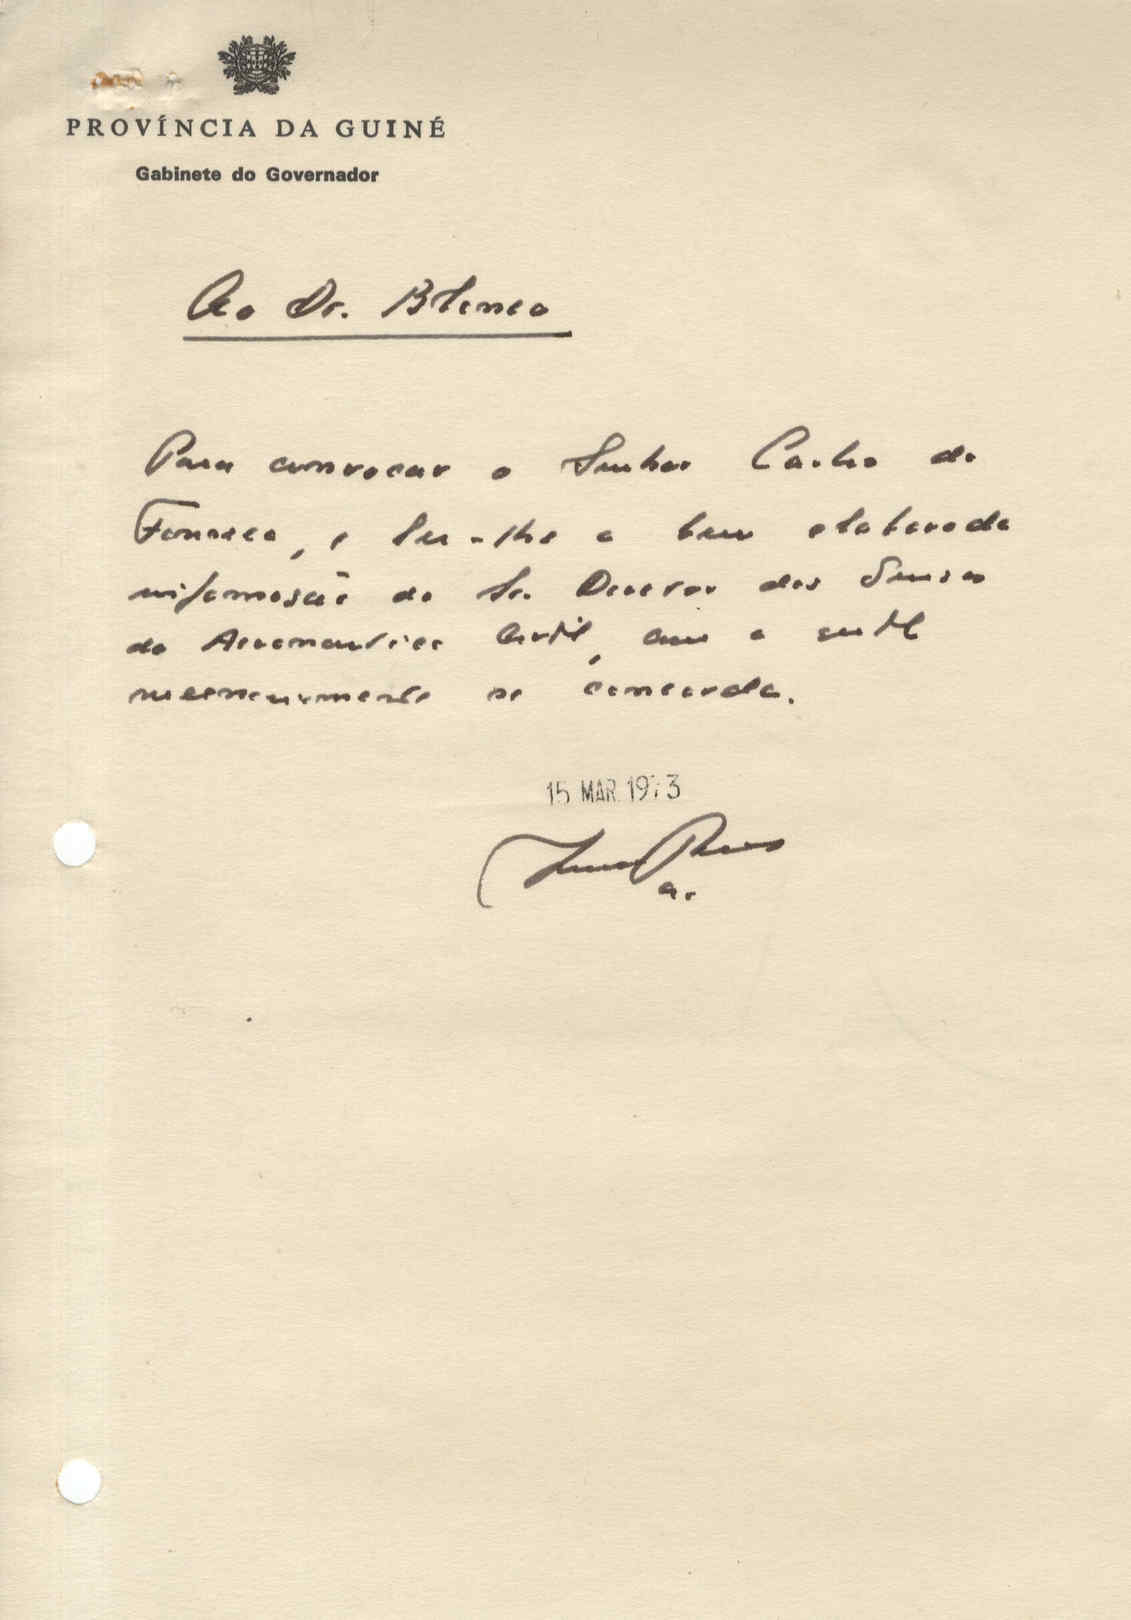 PROVÍNCIA DA GUINÉ
Gabinete do Governador
Ao Dr. Blanco
Para convocar o Senhor Castro da
Fonseca, e ler-lhe a bem elaborada
informação do Sr. Director dos Serviços
da Aeronautica Civil, com a qual
inteiramente se concorda.
15 MAR. 1973